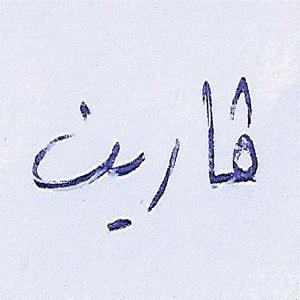 ڤارين